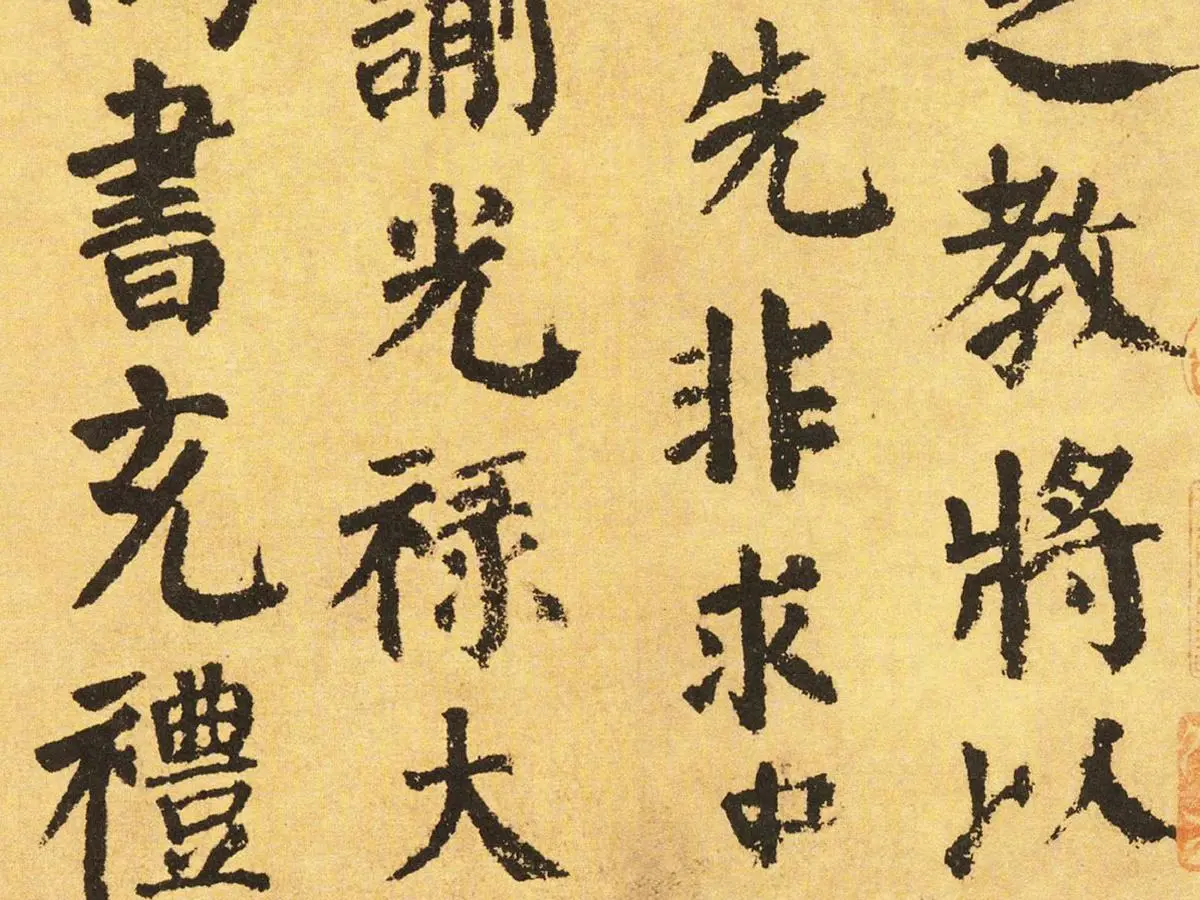 之教將以
先非求中
諭光禄大
書充禮